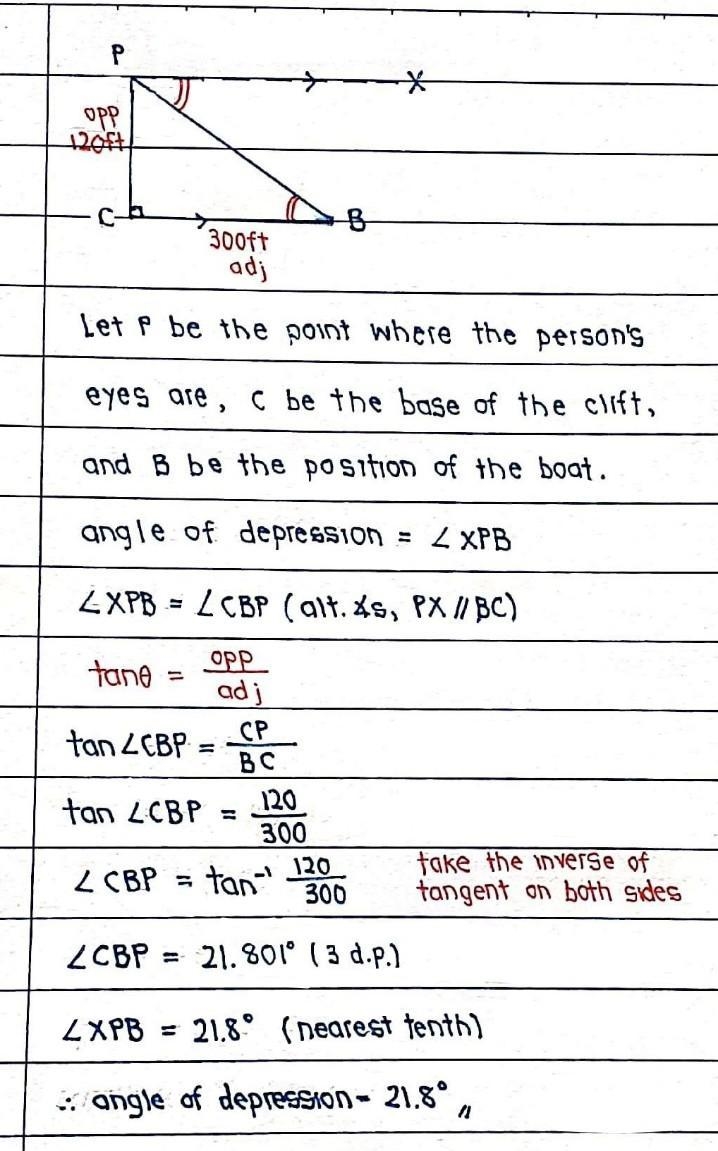 P
X
opp
120ft
C
B
300ft
adj
Let P be the point where the person's
eyes are, C be the base of the clift,
and B be the position of the boat.
angle of depression = ∠XPB
∠XPB = ∠CBP (alt. ∡s, PX // BC)
tanθ = opp/adj
tan∠CBP = CP/BC
tan ∠CBP = 120/300
∠CBP = tan⁻¹ 120/300 take the inverse of
tangent on both sides
∠CBP = 21.801° (3 d.p.)
∠XPB = 21.8° (nearest tenth)
∴ angle of depression = 21.8° //